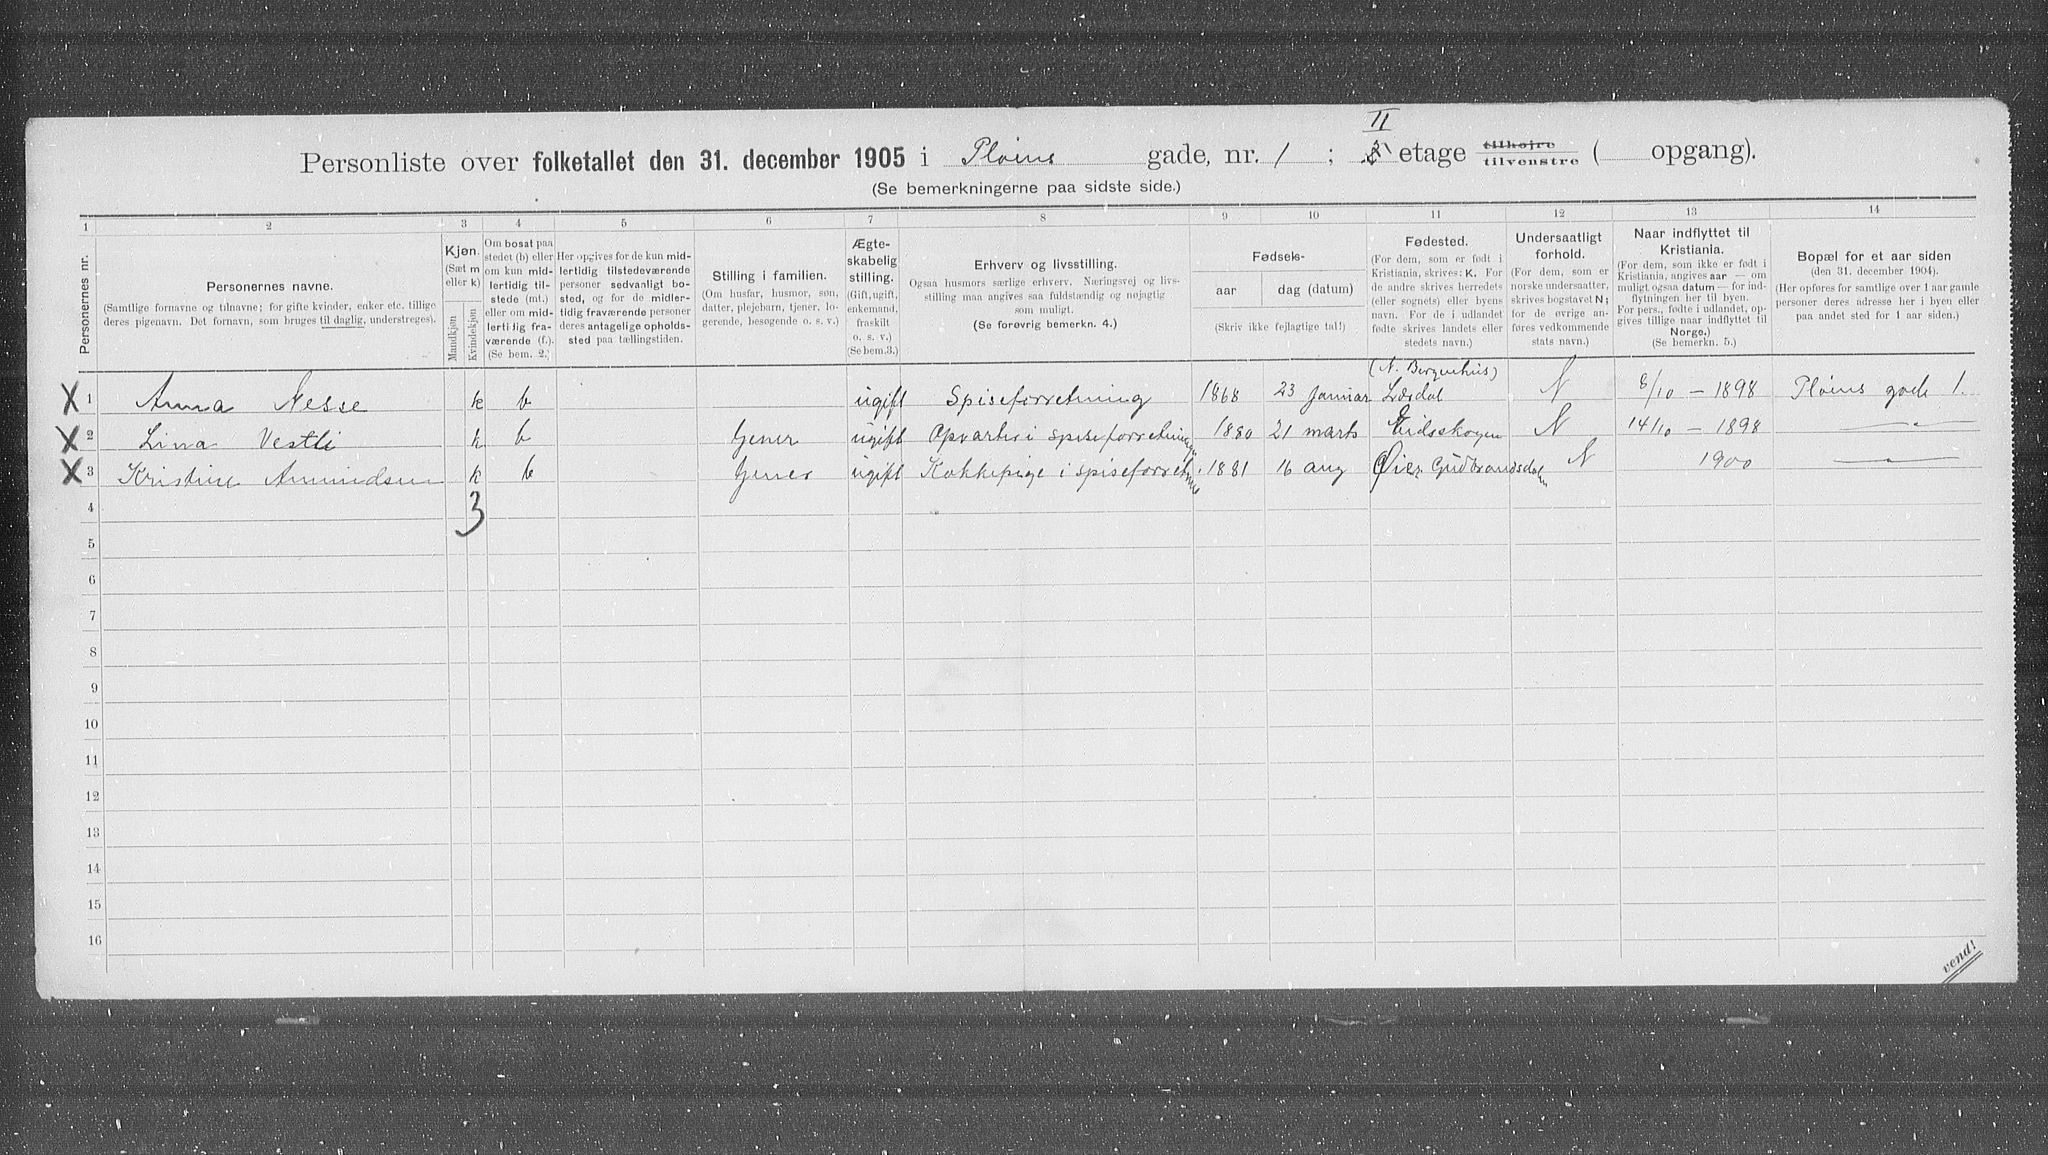 II
Personliste over folketallet den 31. december 1905 i Pløins gade, nr. 1 ; etage tilhøjre tilvenstre ( opgang).
(Se bemerkningerne paa sidste side.)
1 2 3 4 5 6 7 8 9 10 11 12 13 14
Personernes nr.
Personernes navne.
(Samtlige fornavne og tilnavne; for gifte kvinder, enker etc. tillige
deres pigenavn. Det fornavn, som bruges til daglig, understreges).
Kjøn.
(Sæt m
eller k)
Mandkjøn
Kvindekjøn
Om bosat paa
stedet (b) eller
om kun mid-
lertidig til-
stede (mt.)
eller om mid-
lertidig fra-
værende (f.).
(Se bem. 2.)
Her opgives for de kun mid-
lertidig tilstedeværende
personer sedvanligt bo-
sted, og for de midler-
tidig fraværende personer
deres antagelige opholds-
sted paa tællingstiden.
Stilling i familien.
(Om husfar, husmor, søn,
datter, plejebarn, tjener, lo-
gerende, besøgende o. s. v.)
Ægte-
skabelig
stilling.
(Gift, ugift,
enkemand,
fraskilt
o. s. v.)
(Se bem. 3.)
Erhverv og livsstilling.
Ogsaa husmors særlige erhverv. Næringsvej og livs-
stilling maa angives saa fuldstændig og nøjagtig
som muligt.
(Se forøvrig bemerkn. 4.)
Fødsels-
aar
dag (datum)
(Skriv ikke fejlagtige tal!)
Fødested.
(For dem, som er født i
Kristiania, skrives: K. For
de andre skrives herredets
(eller sognets) eller byens
navn. For de i udlandet
fødte skrives landets eller
stedets navn.)
Undersaatligt
forhold.
(For dem, som er
norske undersaatter,
skrives bogstavet N;
for de øvrige an-
føres vedkommende
stats navn.)
Naar indflyttet til
Kristiania.
(For dem, som ikke er født i
Kristiania, angives aar — om
muligt ogsaa datum — for ind-
flytningen her til byen.
For pers., fødte i udlandet, op-
gives tillige naar indflyttet til
Norge.)
(Se bemerkn. 5.)
Bopæl for et aar siden
(den 31. december 1904).
(Her opføres for samtlige over 1 aar gamle
personer deres adresse her i byen eller
paa andet sted for 1 aar siden.)
(N. Bergenhus)
X 1 Anna Nesse k b ugift Spiseforretning 1868 23 Januar Lærdal N 8/10 – 1898 Pløins gade 1.
X 2 Lina Vestli k b tjener ugift Opvarter i spiseforretningen 1880 21 marts Eidsskogen N 14/10 – 1898 — " —
X 3 Kristine Amundsen k b tjener ugift Kokkepige i spiseforretningen 1881 16 aug Øier Gudbrandsdalen N 1900 — " —
3
4
5
6
7
8
9
10
11
12
13
14
15
16
vend!